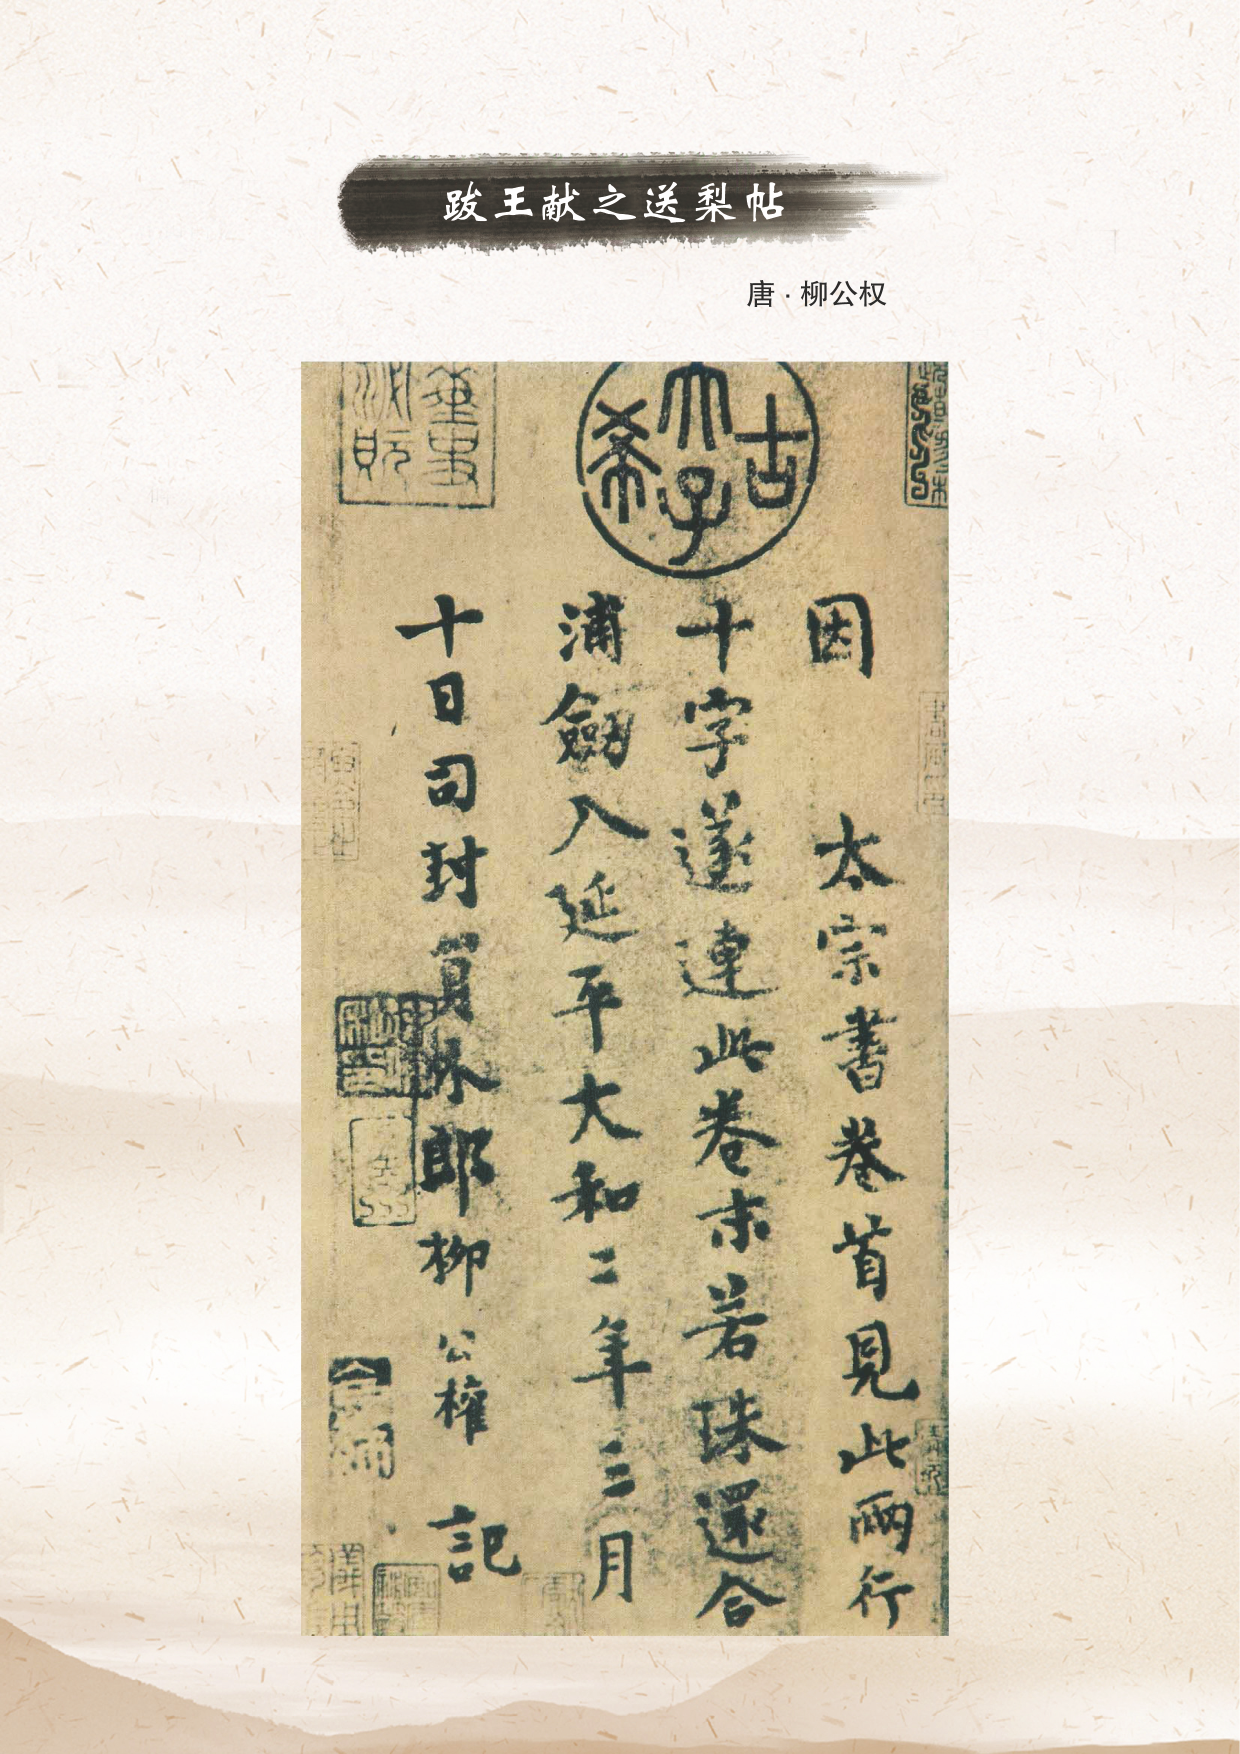 跋王献之送梨帖
唐·柳公权
古
希
天
子
因 太宗書卷首見此兩行
十字遂連此卷末若珠還合
浦劔入延平大和二年三月
十日司封員外郎柳公權 記